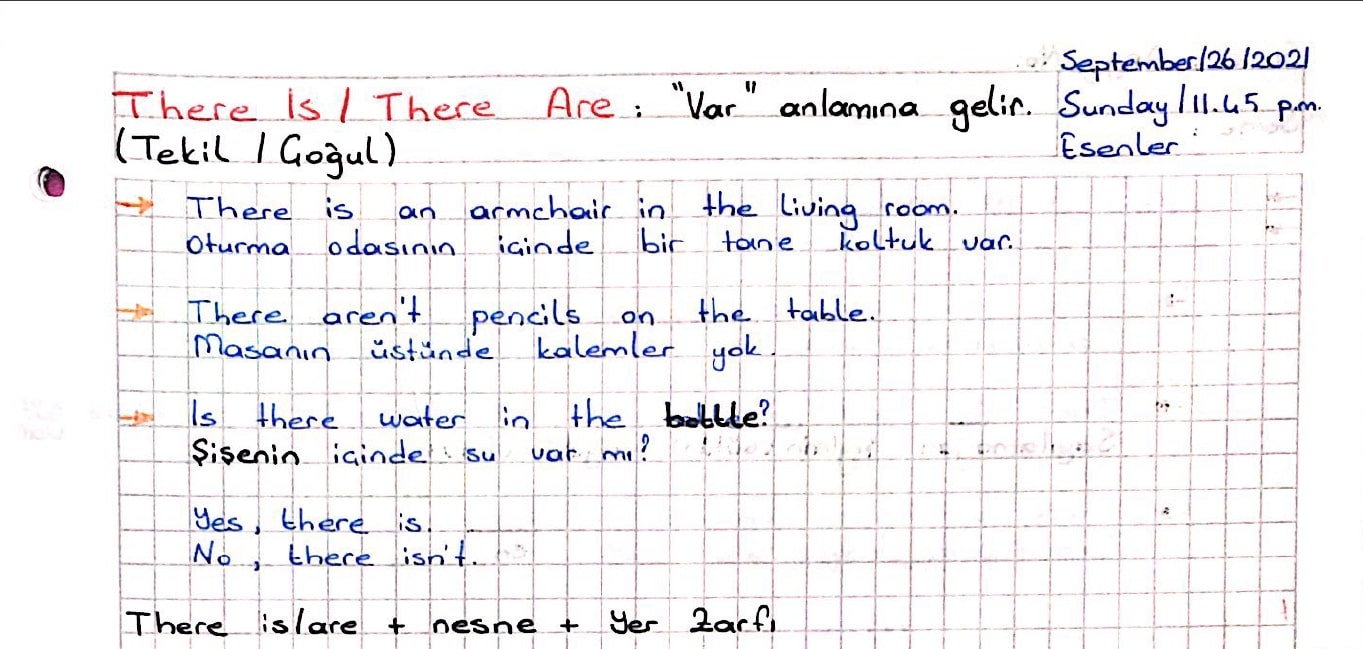 September/26/2021
There Is / There Are : "Var" anlamına gelir. Sunday/11.45 p.m.
(Tekil / Çoğul) Esenler
→ There is an armchair in the living room.
Oturma odasının içinde bir tane koltuk var.
→ There aren't pencils on the table.
Masanın üstünde kalemler yok.
→ Is there water in the bottle?
Şişenin içinde su var mı?
Yes, there is.
No, there isn't.
There is/are + nesne + Yer Zarfı